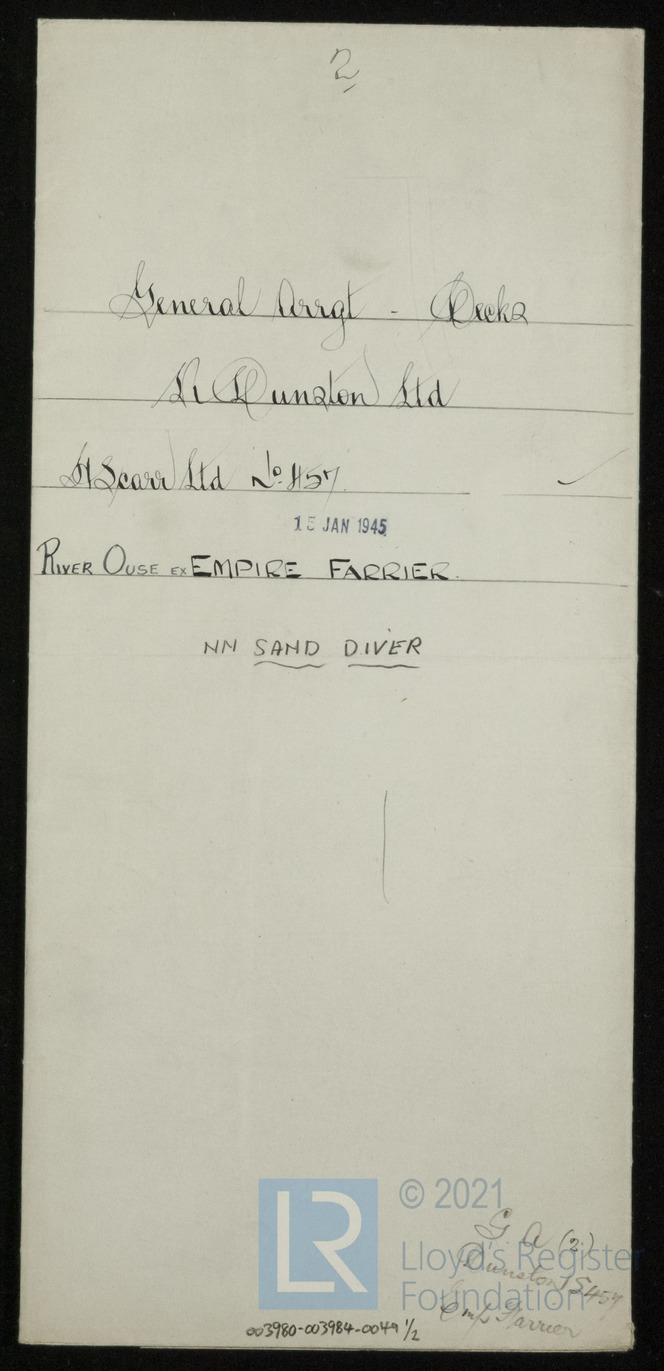 2
General Arrgt - Decks
R Dunston Ltd
H Scarr Ltd No. S457.
15 JAN 1945
RIVER OUSE EX EMPIRE FARRIER.
NN SAND DIVER
LR
© 2021
Lloyd's Register
Foundation
G. A (2)
Dunston S457
Emp Farrier
003980-003984-0049 1/2